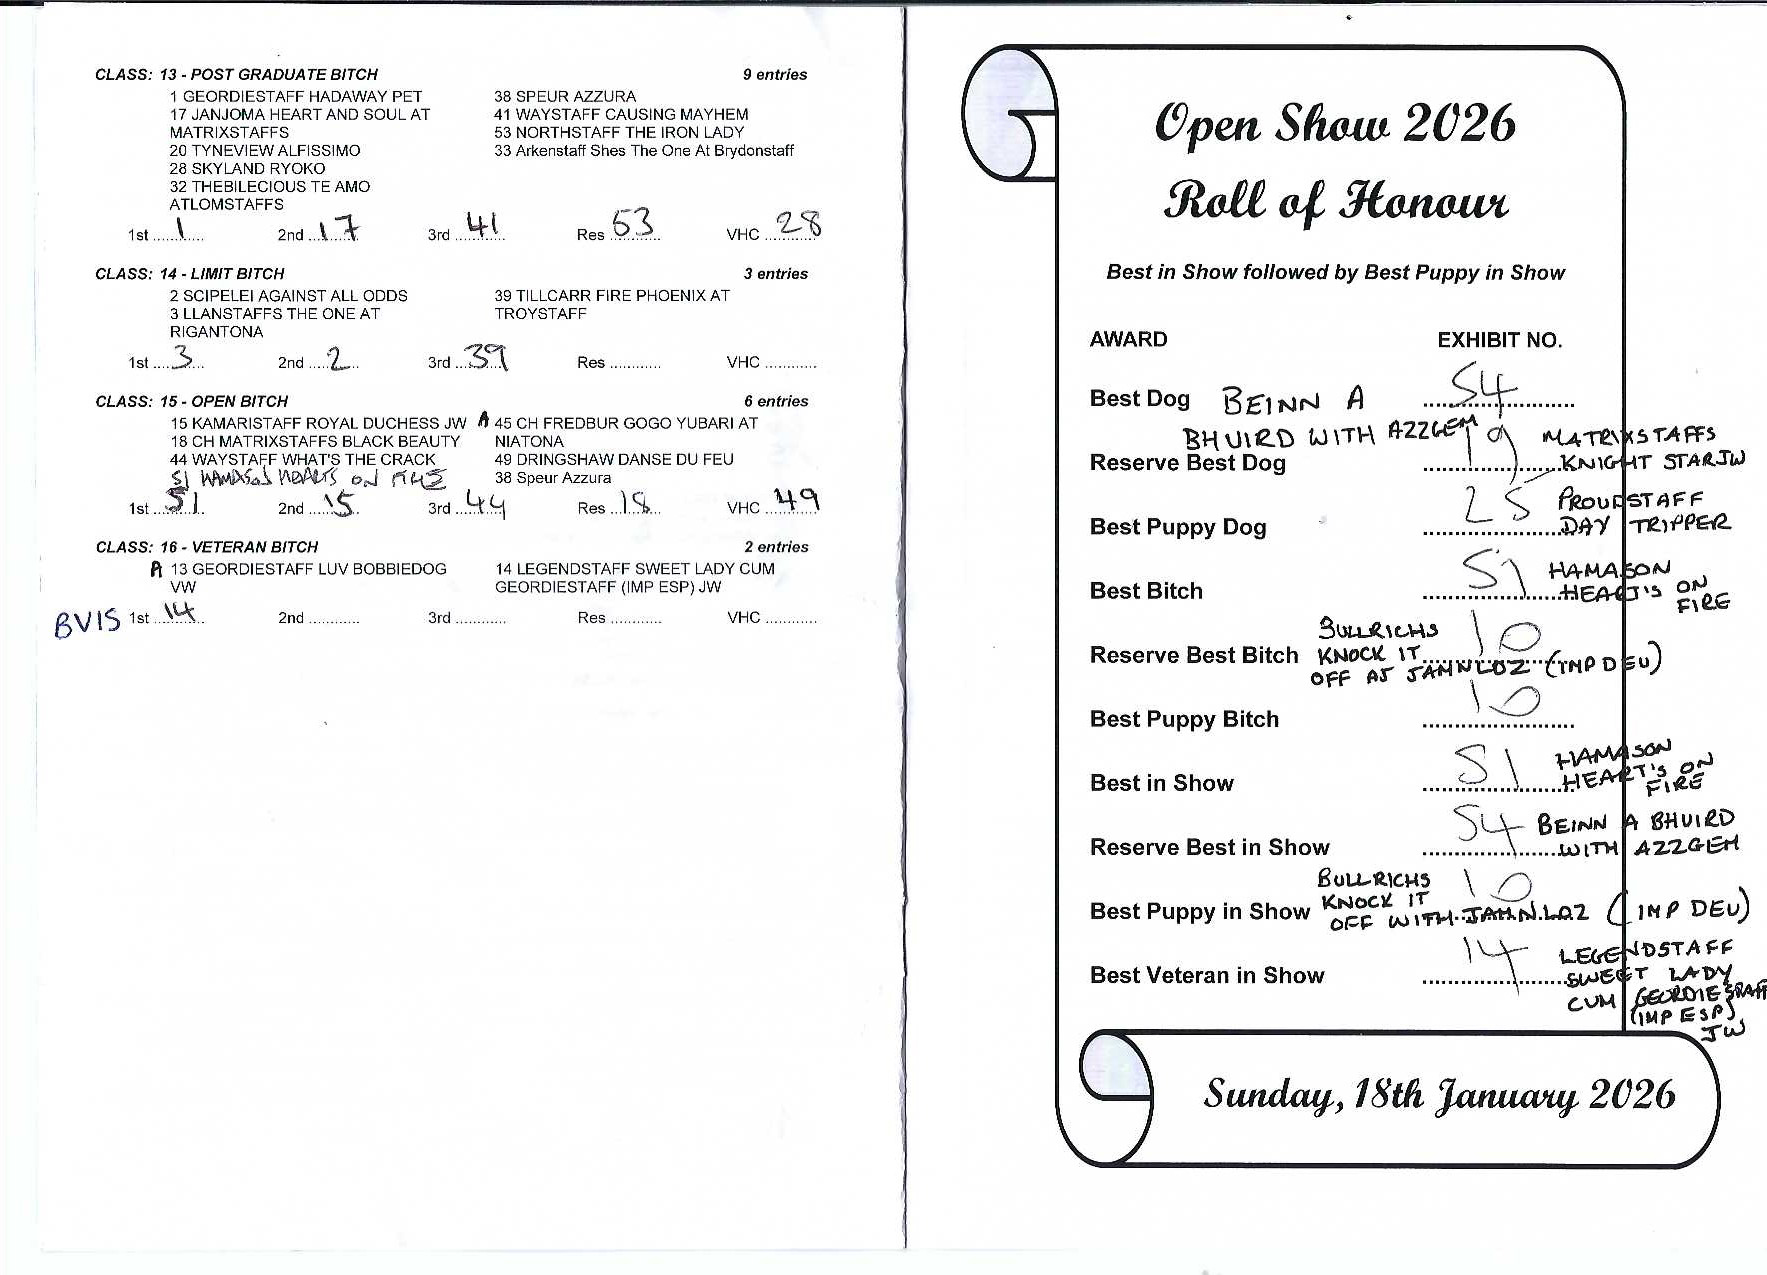 CLASS: 13 - POST GRADUATE BITCH 9 entries
1 GEORDIESTAFF HADAWAY PET
17 JANJOMA HEART AND SOUL AT
MATRIXSTAFFS
20 TYNEVIEW ALFISSIMO
28 SKYLAND RYOKO
32 THEBILECIOUS TE AMO
ATLOMSTAFFS
38 SPEUR AZZURA
41 WAYSTAFF CAUSING MAYHEM
53 NORTHSTAFF THE IRON LADY
33 Arkenstaff Shes The One At Brydonstaff
1st 1 2nd 17 3rd 41 Res 53 VHC 28
CLASS: 14 - LIMIT BITCH 3 entries
2 SCIPELEI AGAINST ALL ODDS
3 LLANSTAFFS THE ONE AT
RIGANTONA
39 TILLCARR FIRE PHOENIX AT
TROYSTAFF
1st 3 2nd 2 3rd 39 Res VHC
CLASS: 15 - OPEN BITCH 6 entries
15 KAMARISTAFF ROYAL DUCHESS JW
18 CH MATRIXSTAFFS BLACK BEAUTY
44 WAYSTAFF WHAT'S THE CRACK
51 HAMASON HEARTS ON FIRE
A 45 CH FREDBUR GOGO YUBARI AT
NIATONA
49 DRINGSHAW DANSE DU FEU
38 Speur Azzura
1st 51 2nd 15 3rd 44 Res 18 VHC 49
CLASS: 16 - VETERAN BITCH 2 entries
A 13 GEORDIESTAFF LUV BOBBIEDOG
VW
14 LEGENDSTAFF SWEET LADY CUM
GEORDIESTAFF (IMP ESP) JW
BVIS 1st 14 2nd 3rd Res VHC
Open Show 2026
Roll of Honour
Best in Show followed by Best Puppy in Show
AWARD EXHIBIT NO.
Best Dog BEINN A 54
BHUIRD WITH AZZGEM
Reserve Best Dog 19 MATRIXSTAFFS
KNIGHT STAR JW
Best Puppy Dog 25 PROUDSTAFF
DAY TRIPPER
Best Bitch 51 HAMASON
HEART'S ON
FIRE
Reserve Best Bitch BULLRICHS 10
KNOCK IT
OFF AT JAHNLOZ (IMP DEU)
Best Puppy Bitch 10
Best in Show 51 HAMASON
HEART'S ON
FIRE
Reserve Best in Show 54 BEINN A BHUIRD
WITH AZZGEM
Best Puppy in Show BULLRICHS 10
KNOCK IT
OFF WITH JAHNLOZ (IMP DEU)
Best Veteran in Show 14 LEGENDSTAFF
SWEET LADY
CUM GEORDIESTAFF
(IMP ESP)
JW
Sunday, 18th January 2026